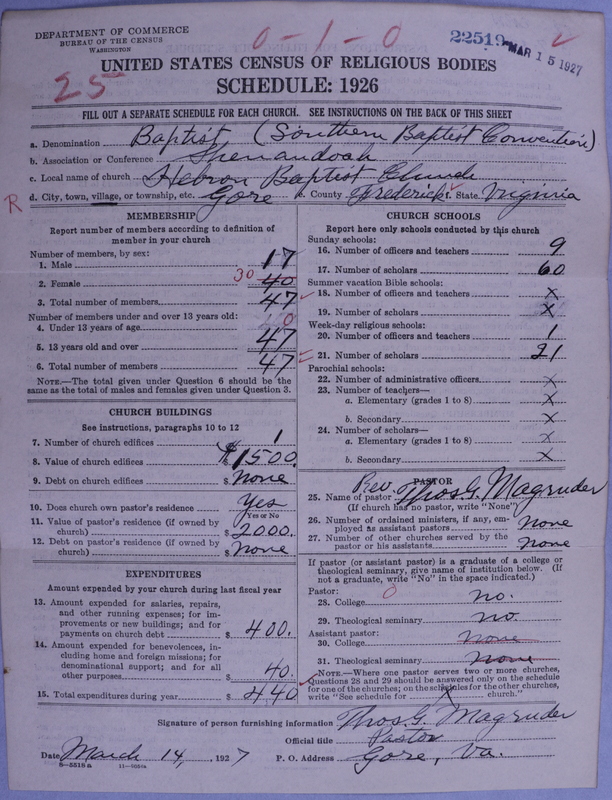 DEPARTMENT OF COMMERCE
BUREAU OF THE CENSUS
WASHINGTON
0-1-0
22519
MAR 15 1927
25
UNITED STATES CENSUS OF RELIGIOUS BODIES
SCHEDULE: 1926
FILL OUT A SEPARATE SCHEDULE FOR EACH CHURCH. SEE INSTRUCTIONS ON THE BACK OF THIS SHEET
a. Denomination Baptist (Southern Baptist Convention)
b. Association or Conference Shenandoah
c. Local name of church Hebron Baptist Church
R d. City, town, village, or township, etc. Gore e. County Frederick f. State Virginia
MEMBERSHIP
Report number of members according to definition of
member in your church
Number of members, by sex:
1. Male 17
2. Female 30 40
3. Total number of members 47
Number of members under and over 13 years old:
4. Under 13 years of age 0
5. 13 years old and over 47
6. Total number of members 47
NOTE.—The total given under Question 6 should be the
same as the total of males and females given under Question 3.
CHURCH BUILDINGS
See instructions, paragraphs 10 to 12
7. Number of church edifices 1
8. Value of church edifices $1500.
9. Debt on church edifices $ None
10. Does church own pastor's residence Yes
Yes or No
11. Value of pastor's residence (if owned by
church) $ 2000.
12. Debt on pastor's residence (if owned by
church) $ None
EXPENDITURES
Amount expended by your church during last fiscal year
13. Amount expended for salaries, repairs,
and other running expenses; for im-
provements or new buildings; and for
payments on church debt $ 400.
14. Amount expended for benevolences, in-
cluding home and foreign missions; for
denominational support; and for all
other purposes $ 40.
15. Total expenditures during year $ 440
CHURCH SCHOOLS
Report here only schools conducted by this church
Sunday schools:
16. Number of officers and teachers 9
17. Number of scholars 60
Summer vacation Bible schools:
18. Number of officers and teachers X
19. Number of scholars X
Week-day religious schools:
20. Number of officers and teachers 1
21. Number of scholars 21
Parochial schools:
22. Number of administrative officers X
23. Number of teachers—
a. Elementary (grades 1 to 8) X
b. Secondary X
24. Number of scholars—
a. Elementary (grades 1 to 8) X
b. Secondary X
PASTOR
25. Name of pastor Rev. Thos. G. Magruder
(If church has no pastor, write "None")
26. Number of ordained ministers, if any, em-
ployed as assistant pastors None
27. Number of other churches served by the
pastor or his assistants None
If pastor (or assistant pastor) is a graduate of a college or
theological seminary, give name of institution below. (If
not a graduate, write "No" in the space indicated.)
Pastor: 0
28. College no.
29. Theological seminary no.
Assistant pastor:
30. College none
31. Theological seminary none
NOTE.—Where one pastor serves two or more churches,
Questions 28 and 29 should be answered only on the schedule
for one of the churches; on the schedules for the other churches,
write "See schedule for X church."
Signature of person furnishing information Thos. G. Magruder
Official title Pastor
Date March 14, 1927 P. O. Address Gore, Va.